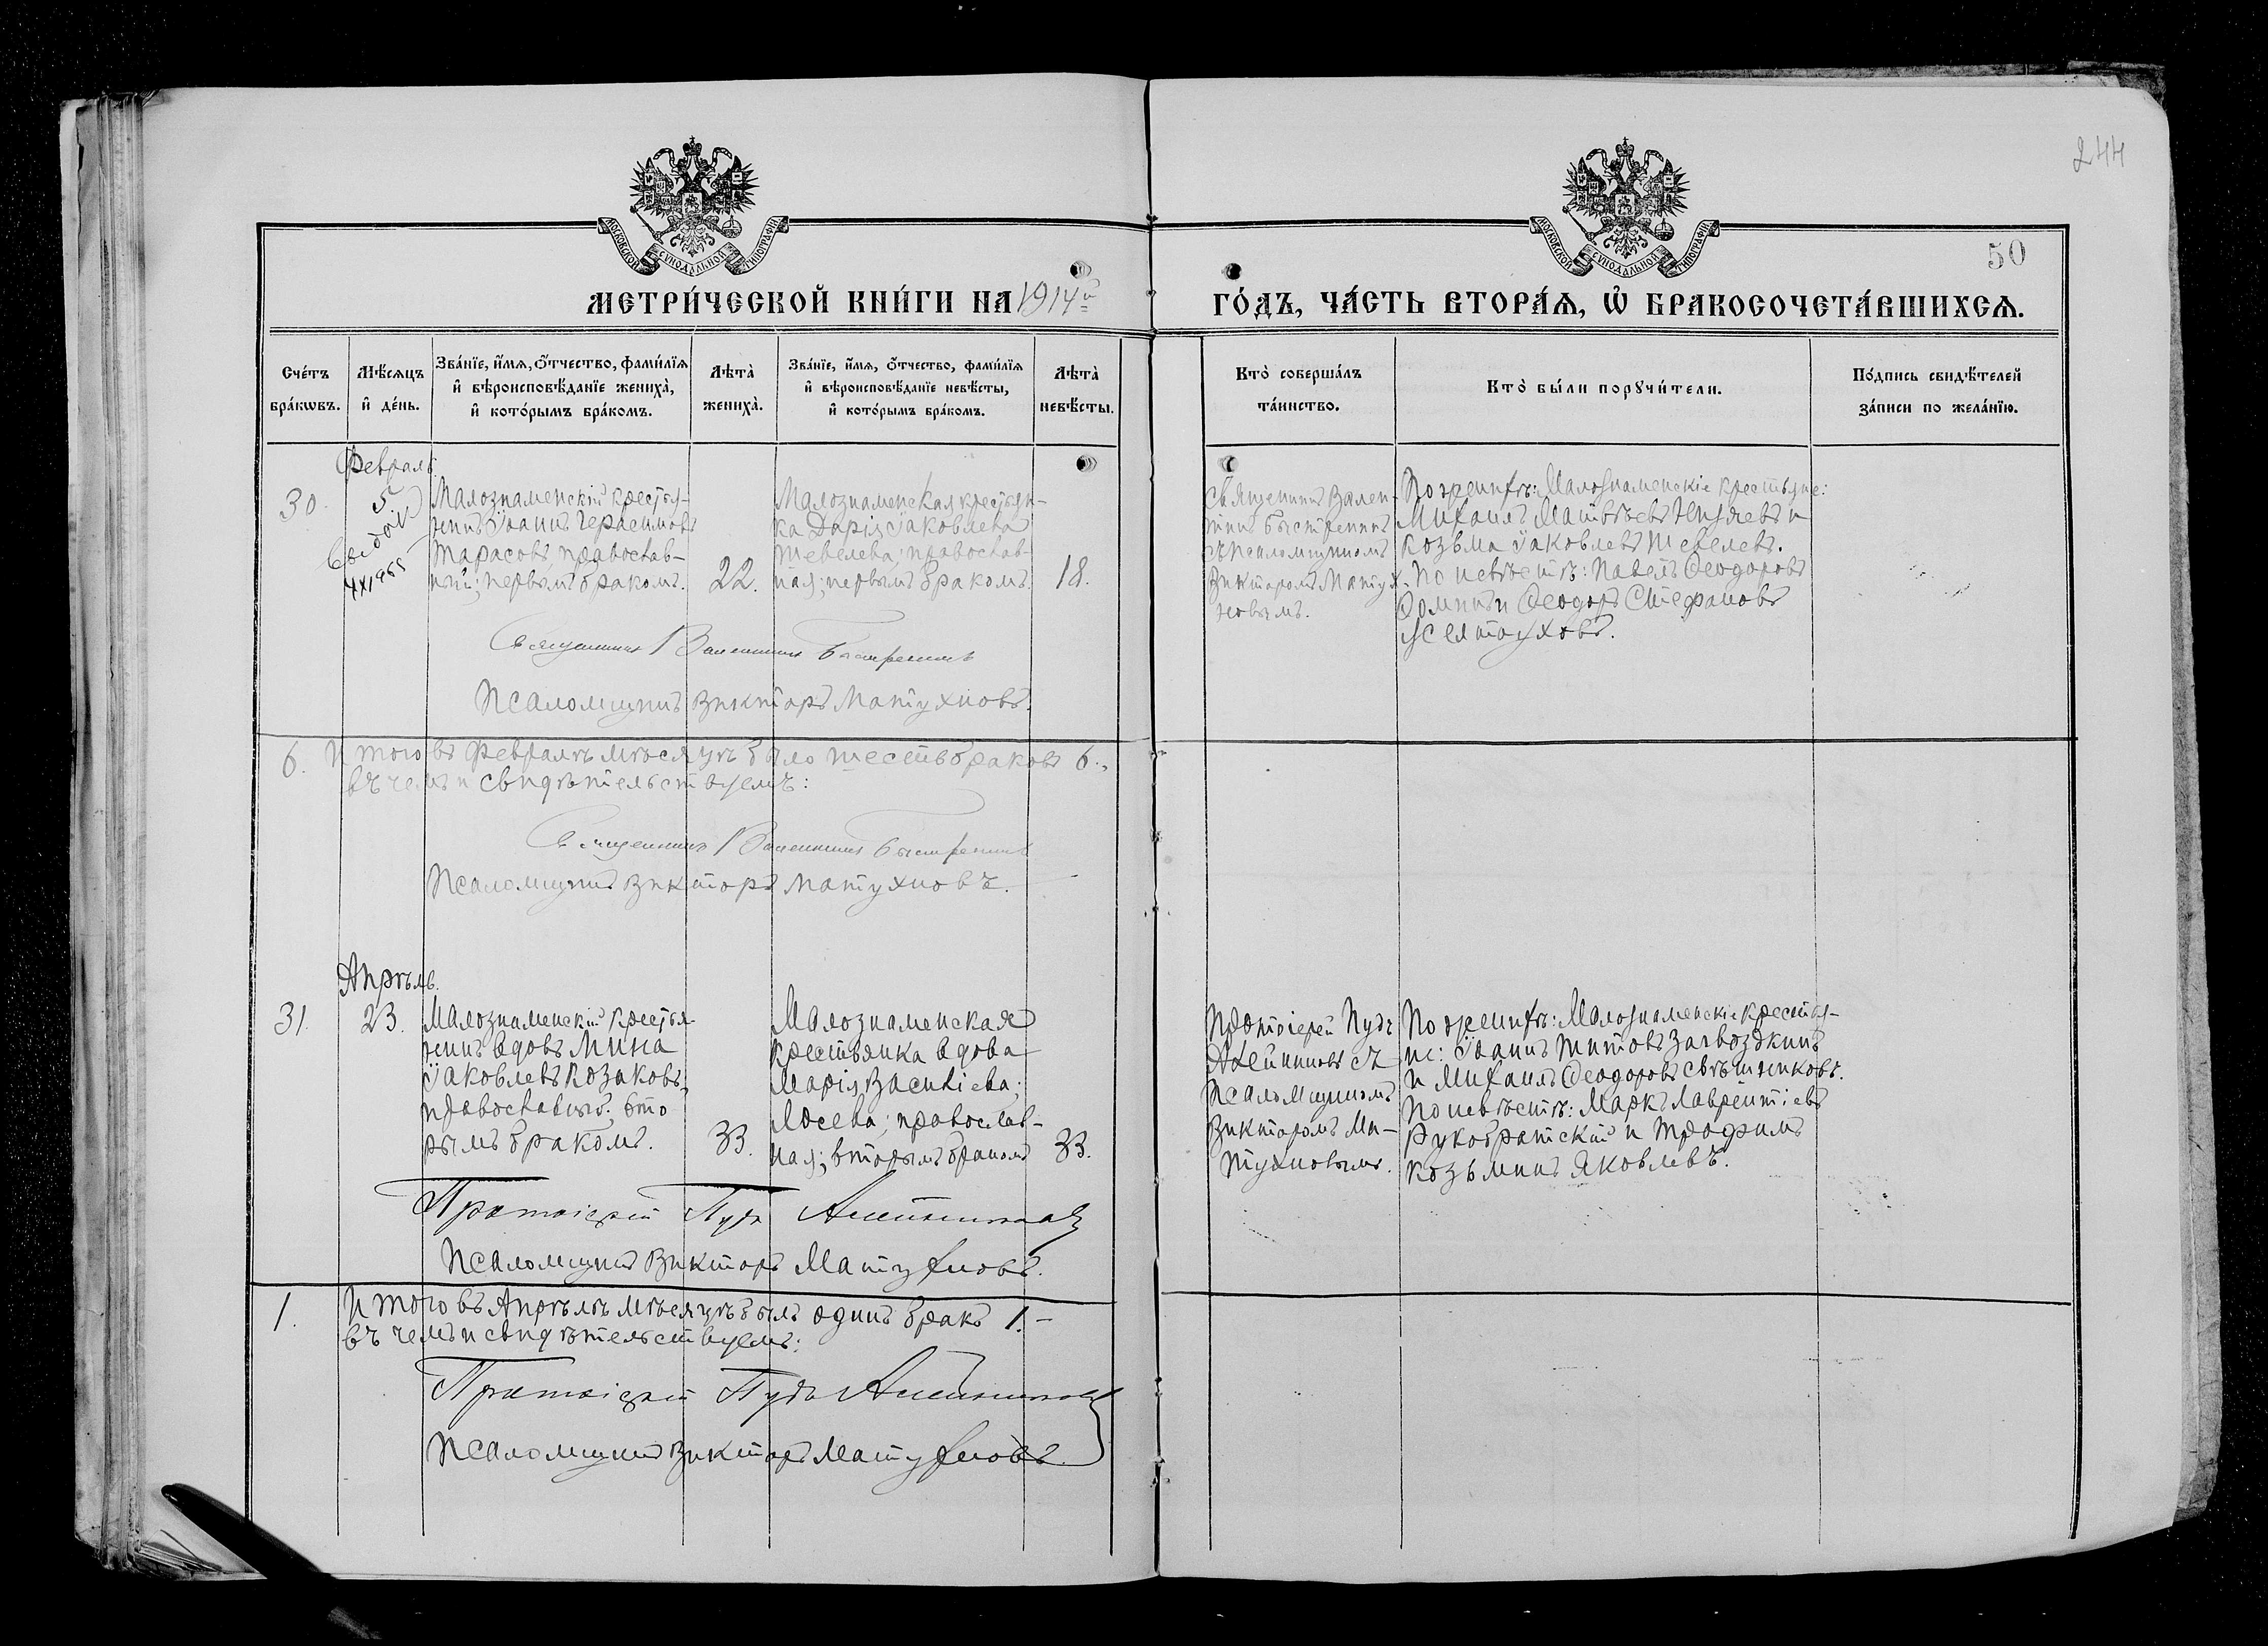 244
МОСКОВСКОЙ СУНОДАЛЬНОЙ ТИПОГРАФІИ
МОСКОВСКОЙ СУНОДАЛЬНОЙ ТИПОГРАФІИ
50
МЕТРИ́ЧЕСКОЙ КНИ́ГИ НА 1914й
ГО́ДЪ, ЧА́СТЬ ВТОРА́Я, Ѡ҆ БРАКОСОЧЕТА́ВШИХСЯ.
Сче́тъ бра́кѡвъ.
Мѣ́сяцъ и҆ де́нь.
Зва́нїе, и҆́мя, о҆́тчество, фами́лїя и҆ вѣроисповѣ́данїе жениха̀, и҆ кото́рымъ бра́комъ.
Лѣта̀ жениха̀.
Зва́нїе, и҆́мя, о҆́тчество, фами́лїя и҆ вѣроисповѣ́данїе невѣ́сты, и҆ кото́рымъ бра́комъ.
Лѣта̀ невѣ́сты.
Кто̀ соверша́лъ та́инство.
Кто̀ бы́ли порꙋчи́тели.
По́дпись свидѣ́телей за́писи по жела́нїю.
Февраль.
30.
5
4х1955
Малознаменскій крестья-
нинъ Іоаннъ Герасимовъ
Тарасовъ, православ-
ный; первымъ бракомъ.
22.
Малознаменская крестьян-
ка Дарія Іаковлева
Шевелева, православ-
ная; первымъ бракомъ.
18.
Священникъ Вален-
тинъ Быстренинъ
съ псаломщикомъ
Викторомъ Матух-
новымъ.
По женихѣ: Малознаменскіе крестьяне:
Михаилъ Матвѣевъ и
Козьма Іаковлевъ Шевелевъ.
По невѣстѣ: Павелъ Ѳеодоровъ
Ѳоминъ и Ѳеодоръ Стефановъ
Желтоуховъ.
Священникъ Валентинъ Быстренинъ
Псаломщикъ Викторъ Матухновъ.
6. Итого въ Февралѣ мѣсяцѣ было шесть браковъ 6.,
въ чемъ и свидѣтельствуемъ:
Священникъ Валентинъ Быстренинъ
Псаломщикъ Викторъ Матухновъ.
Апрѣль.
31.
23.
Малознаменскій крестья-
нинъ вдовъ Мина
Іаковлевъ Козаковъ,
православный. вто
рымъ бракомъ.
33.
Малознаменская
крестьянка вдова
Марія Василіева;
Лосева; православ-
ная; вторымъ бракомъ
33.
Протоіерей Пудъ
Алейниковъ съ
псаломщикомъ
Викторомъ Ма-
тухновымъ.
По женихѣ: Малознаменскіе крестья-
не: Іоаннъ Титовъ Загвоздкинъ
и Михаилъ Ѳеодоровъ Свѣшниковъ.
По невѣстѣ: Маркъ Лаврентіевъ
Рукобратскій и Трофимъ
Козьминъ Яковлевъ.
Протоіерей Пудъ Алейниковъ
Псаломщикъ Викторъ Матухновъ.
1. Итого въ Апрѣлѣ мѣсяцѣ былъ одинъ бракъ 1.-
въ чемъ и свидѣтельствуемъ:
Протоіерей Пудъ Алейниковъ
Псаломщикъ Викторъ Матухновъ.